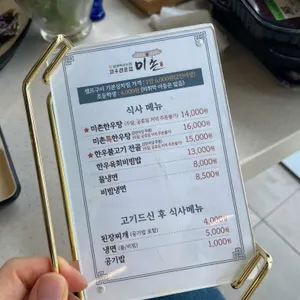 미손
셀프구이 기본상차림 가격 1인 6,000원
초등학생 : 4,000원
식사 메뉴
★ 미촌한우탕 14,000원
미촌특한우탕 16,000원
★ 한우불고기 전골 15,000원
한우육회비빔밥 13,000원
물냉면 8,000원
비빔냉면 8,500원
고기드신 후 식사메뉴
된장찌개 (공기밥 포함) 4,000원
냉면 (물/비빔) 5,000원
공기밥 1,000원